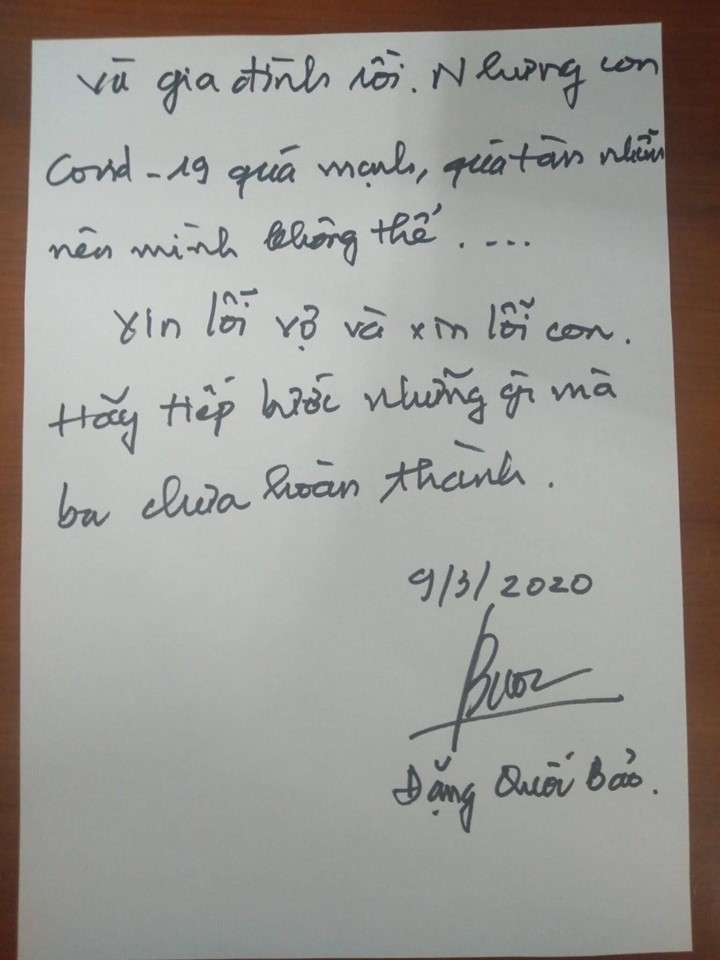 và gia đình rồi. Nhưng con
Covid-19 quá mạnh, quá tàn nhẫn
nên mình không thể. ...
Xin lỗi vợ và xin lỗi con.
Hãy tiếp bước những gì mà
ba chưa hoàn thành.
9/3/2020
Đặng Quốc Bảo.